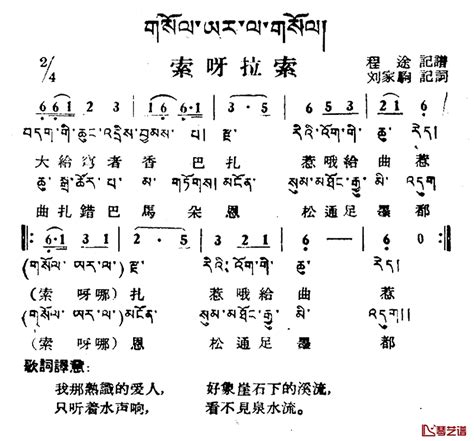 གསོལ་ཨར་ལ་གསོལ།
2/4
索呀拉索
程途 記譜
刘家駒 記詞
6 6 1 2 3 | 1 6 6·1 | 3 · 5 | 6 5 3 | 2 1 6 |
བདག་གི་ཆུང་འདྲིས་བྱམས་པ། རྫ་ རིའི་འོག་གི་ཆུ་རེད།
大給穹者香巴扎 惹哦給曲惹
ཆུ་སྒྲ་ཚོར་པ་མ་གཏོགས། མངོན་ སུམ་མཐོང་རྒྱུ་མི་འདུག
曲扎錯巴馬朵恩 松通足墨都
6·1 | 3 | 2 · 5 | 3 2 1 | 6 — | 6 0
(གསོལ་ཨར་ལ་)རྫ་ རིའི་འོག་གི་ཆུ་རེད།
(索呀哪)扎 惹哦給曲惹
(གསོལ་ཨར་ལ་)མངོན་ སུམ་མཐོང་རྒྱུ་མི་འདུག།
(索呀哪)恩 松通足墨都
歌詞譯意:
我那熱識的爱人, 好象崖石下的溪流,
只听着水声响, 看不見泉水流。
琴艺谱